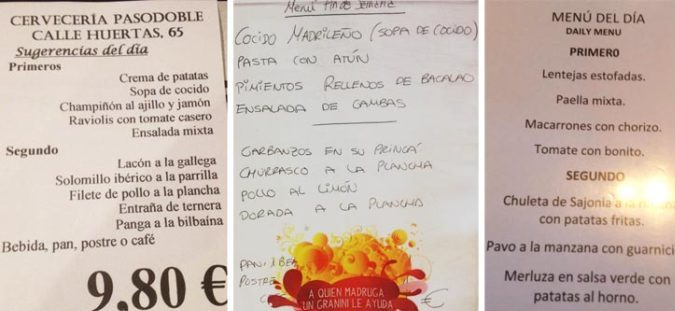 CERVECERÍA PASODOBLE
CALLE HUERTAS, 65
Sugerencias del día
Primeros
Crema de patatas
Sopa de cocido
Champiñón al ajillo y jamón
Raviolis con tomate casero
Ensalada mixta
Segundo
Lacón a la gallega
Solomillo ibérico a la parrilla
Filete de pollo a la plancha
Entraña de ternera
Panga a la bilbaína
Bebida, pan, postre o café
9,80 €
Menú fin de semana
COCIDO MADRILEÑO (SOPA DE COCIDO)
PASTA CON ATÚN
PIMIENTOS RELLENOS DE BACALAO
ENSALADA DE GAMBAS
GARBANZOS EN SU PRINGÁ
CHURRASCO A LA PLANCHA
POLLO AL LIMÓN
DORADA A LA PLANCHA
PAN
POSTRE
€
A QUIEN MADRUGA
UN GRANINI LE AYUDA
MENÚ DEL DÍA
DAILY MENU
PRIMERO
Lentejas estofadas.
Paella mixta.
Macarrones con chorizo.
Tomate con bonito.
SEGUNDO
Chuleta de Sajonia a la
con patatas fritas.
Pavo a la manzana con guarnici
Merluza en salsa verde con
patatas al horno.